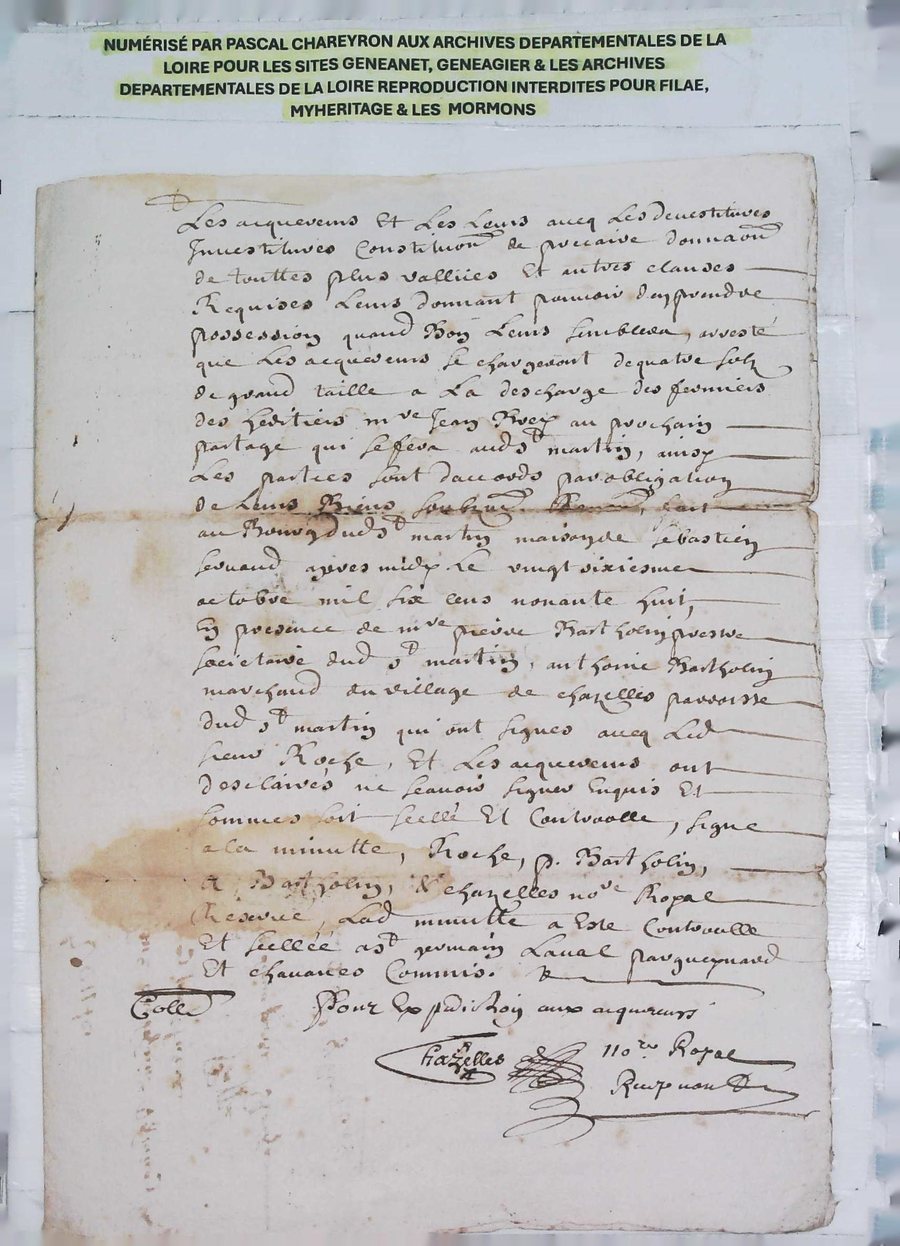 NUMÉRISÉ PAR PASCAL CHAREYRON AUX ARCHIVES DEPARTEMENTALES DE LA
LOIRE POUR LES SITES GENEANET, GENEAGIER & LES ARCHIVES
DEPARTEMENTALES DE LA LOIRE REPRODUCTION INTERDITES POUR FILAE,
MYHERITAGE & LES MORMONS
Les acquereurs Et Les Leurs avecq Les devestitures
Investitures Constitution de precaire donnaon
de touttes plus vallúes Et autres clauses
Requises Leurs donnant pouvoir den prendre
possession quand Bon Leurs semblera, arresté
que Les acquereurs se chargeront de quatre solz
de grand taille a La descharge des fermiers
des heritiers mre Jean au prochain
partage qui se fera aud st martin, ainsy
Les parties sont daccords par obligation
de Leurs Biens fait
au Bourg dud st martin maison de sebastien
apres midy Le vingt sixiesme
octobre mil six cens nonante huit,
En presence de mre pierre Bartholin prestre
societaire dud st martin, anthoine Bartholin
marchand du village de chazelles parroisse
dud st martin qui ont signes avecq Led
sieur Roche, Et Les acquereurs ont
desclairés ne scavoir signer Enquis Et
sommés soit scellé Et Controolle, signe
a la minutte, Roche, p. Bartholin,
A Bartholin, & chazelles nore Royal
Reservé, Lad minutte a Esté Controolle
Et scellée a st germain Laval par
Et chavanes Commis.
Colle
Pour Expedition aux acquereurs
Chazelles nore Royal